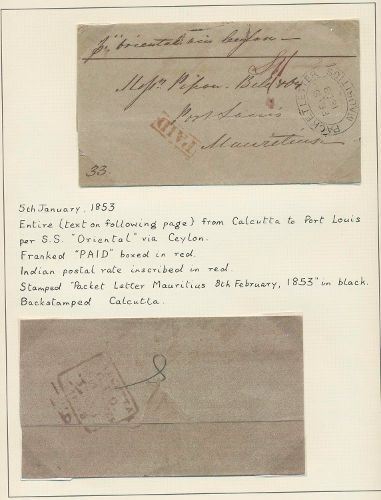 pr "Oriental" via Ceylon
Messrs. Pipon. Bell & Co.
Port Louis
Mauritius
PAID
33.
PACKET LETTER MAURITIUS
FE 8
1853
5th January, 1853
Entire (text on following page) from Calcutta to Port Louis
per S.S. "Oriental" via Ceylon.
Franked "PAID" boxed in red.
Indian postal rate inscribed in red.
Stamped "Packet Letter Mauritius 8th February, 1853" in black.
Backstamped Calcutta.